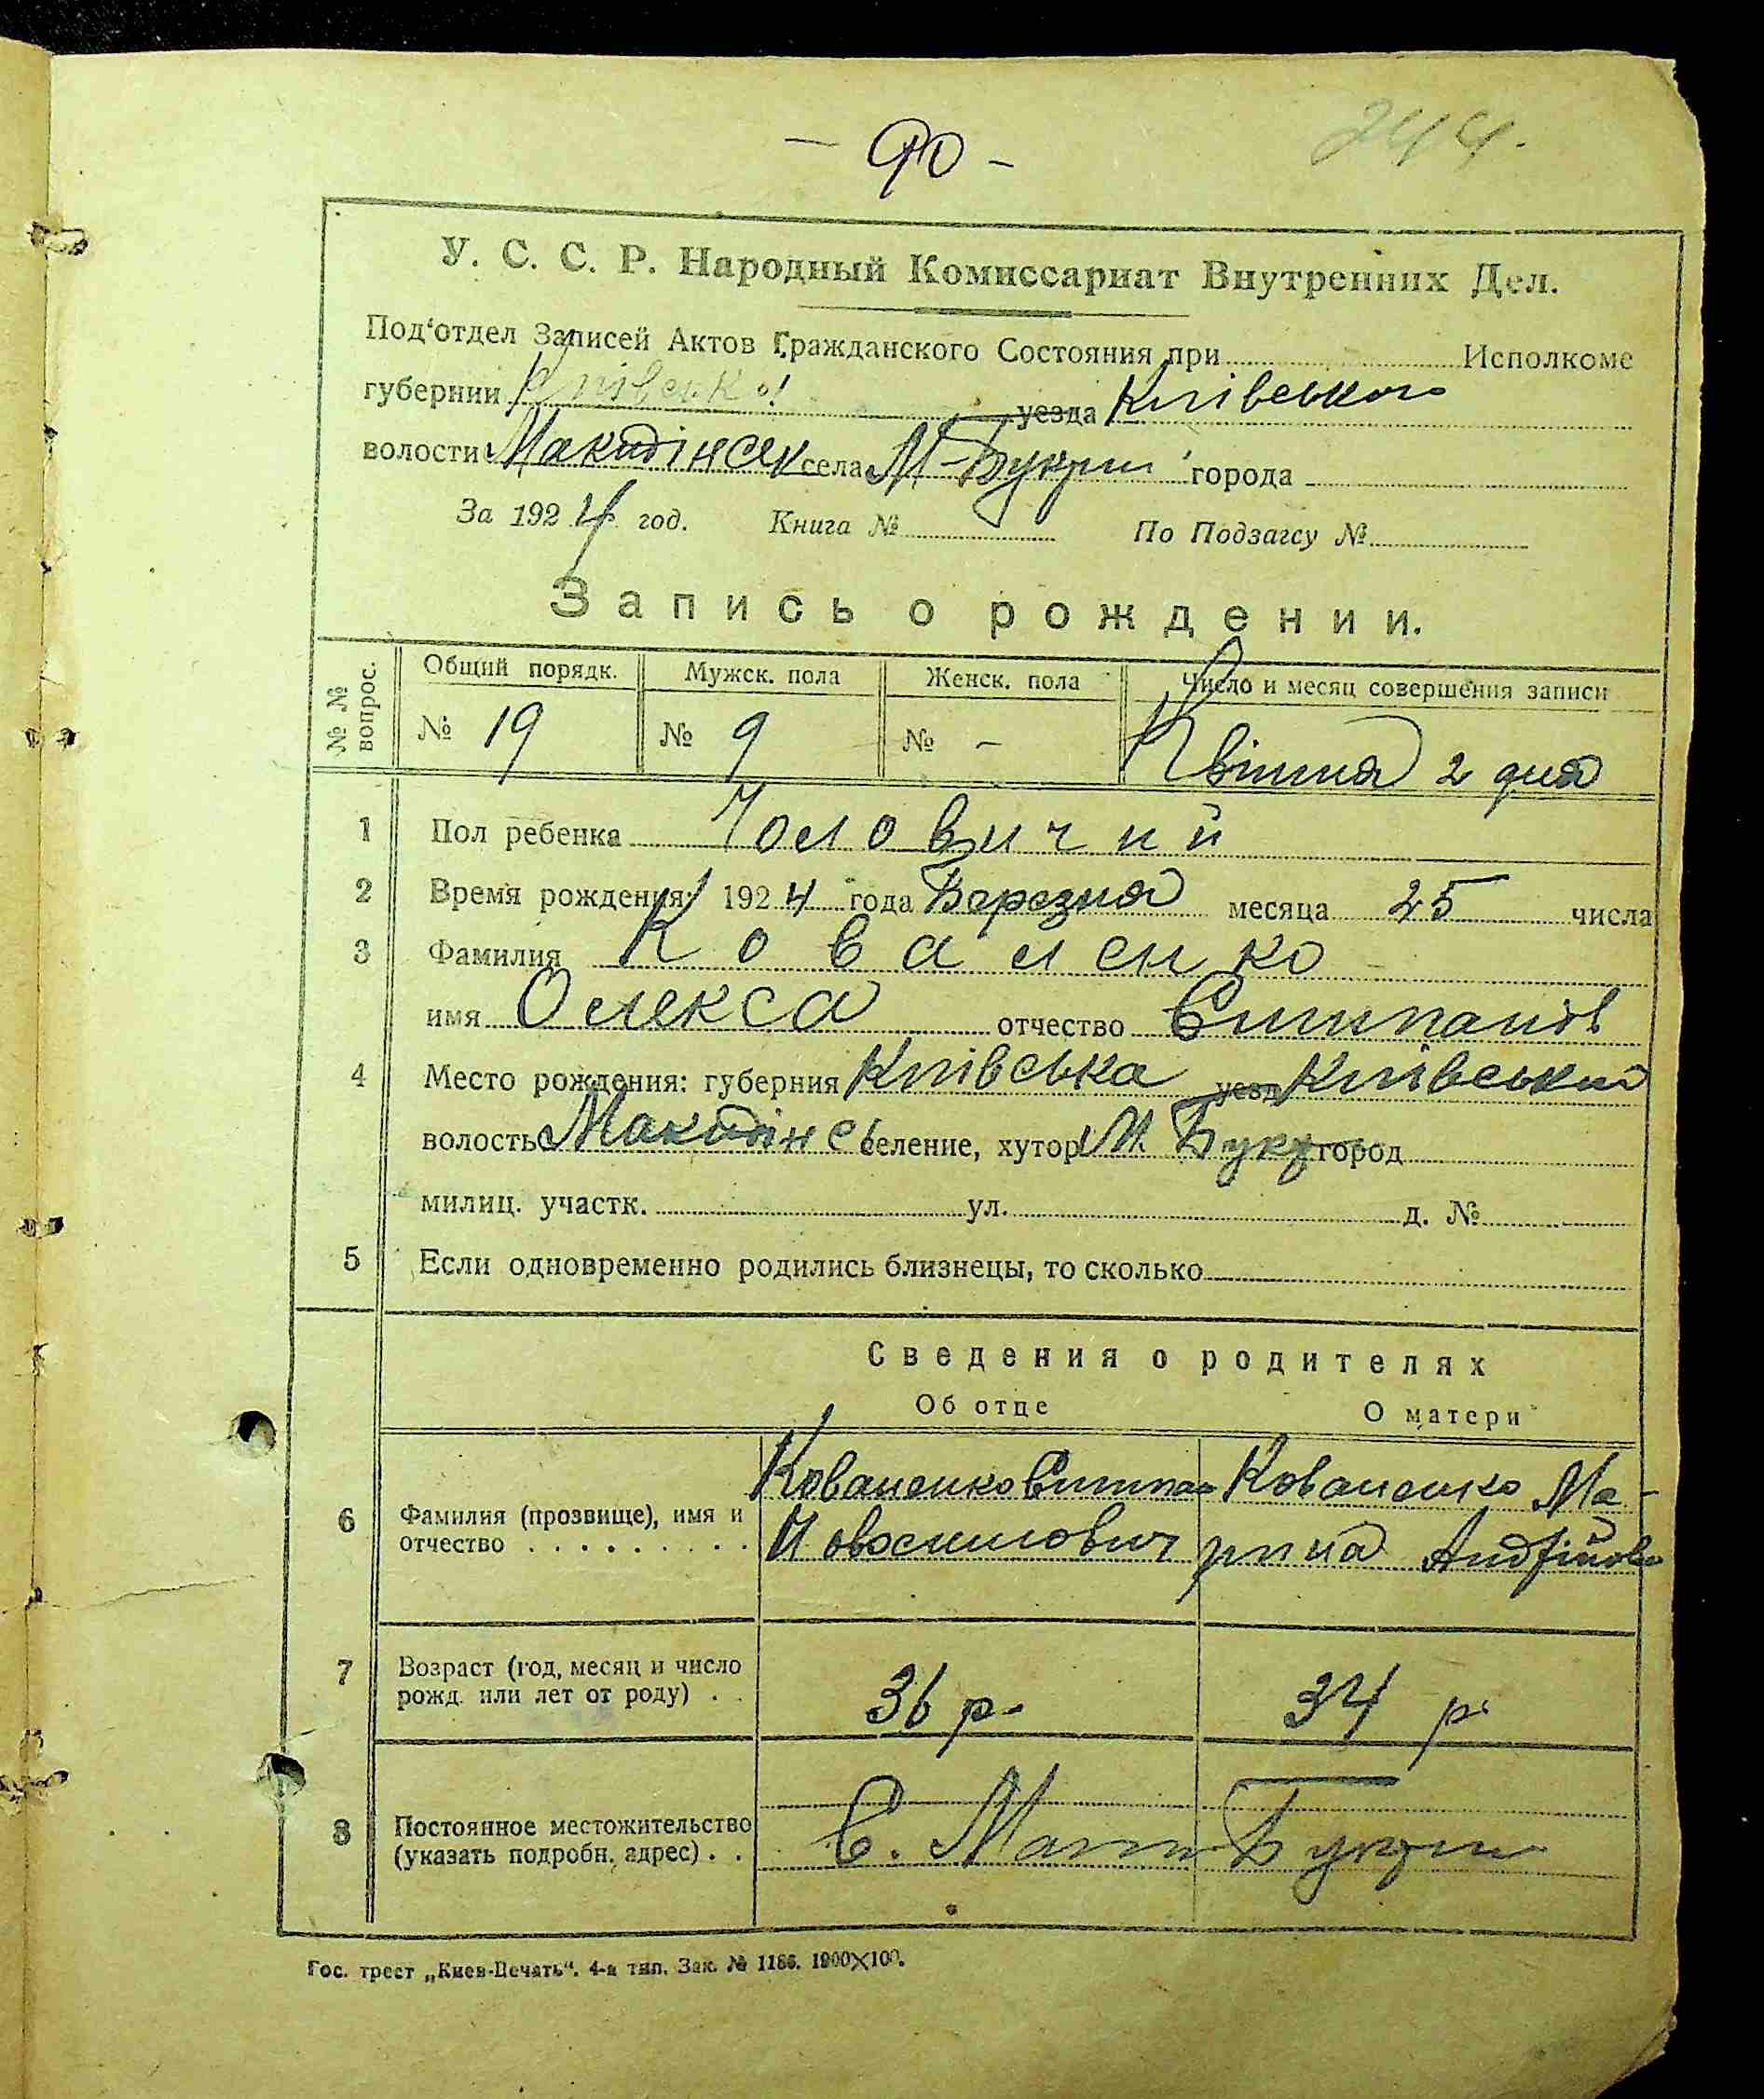 - 90 -
244.
У. С. С. Р. Народный Комиссариат Внутренних Дел.
Под'отдел Записей Актов Гражданского Состояния при Исполкоме
губернии Київської уезда Київського
волости села М-Букрин города
За 1924 год. Книга № По Подзагсу №
Запись о рождении.
№ № вопрос. Общий порядк. Мужск. пола Женск. пола Число и месяц совершения записи
№ 19 № 9 № - Квітня 2 дня
1 Пол ребенка Чоловичий
2 Время рождения: 1924 года Березня месяца 25 числа
3 Фамилия Коваленко
имя Олекса отчество Степанов
4 Место рождения: губерния Київська уезд Київський
волость селение, хутор М Букр город
милиц. участк. ул. д. №
5 Если одновременно родились близнецы, то сколько
Сведения о родителях
Об отце О матери
Коваленко Степан Коваленко Ма-
6 Фамилия (прозвище), имя и
отчество . . . . . . . . . рина Андрійовн
7 Возраст (год, месяц и число
рожд. или лет от роду) . . 36 р. 34 р.
8 Постоянное местожительство
(указать подробн. адрес) . . С. Мали Букрин
Гос. трест „Киев-Печать". 4-я тип. Зак. № 1186. 1900×100.